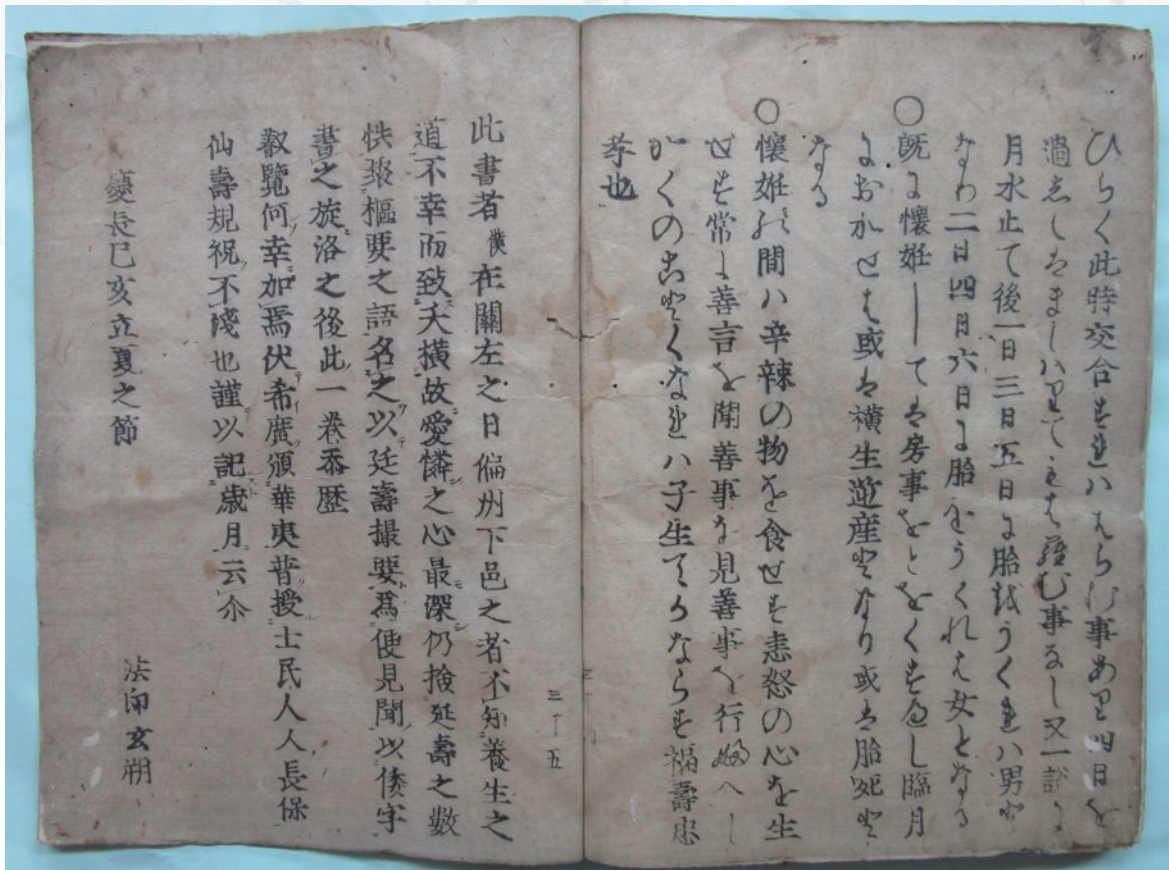 ひらく此時交合すれハはらむ事あり四日を
過ましハりてもはらむ事なし又一説に
月水止て後一日三日五日に胎越うくれハ男と
なり二日四日六日に胎をうくれは女となる
〇既に懐妊してハ房事をとをくすへし臨月
におかせは或ハ横生逆産となり或ハ胎死と
なる
〇懐妊の間ハ辛辣の物を食せす恚怒の心を生
せす常に善言を聞善事を見善事を行ふへし
かくのことくなれハ子生てかならす福壽忠
孝也
三ノ五
此書者僕在關左之日偏州下邑之者不知養生之
道不幸而致夭横故愛憐之心最深仍撿延壽之數
帙聚樞要之語名之以延壽撮要爲便見聞以倭字
書之旋洛之後此一巻忝歴
叡覽何幸加焉伏希廣頒華夷普授士民人人長保
仙壽規祝不淺也謹以記歳月云尒
慶長己亥立夏之節
法印玄朔